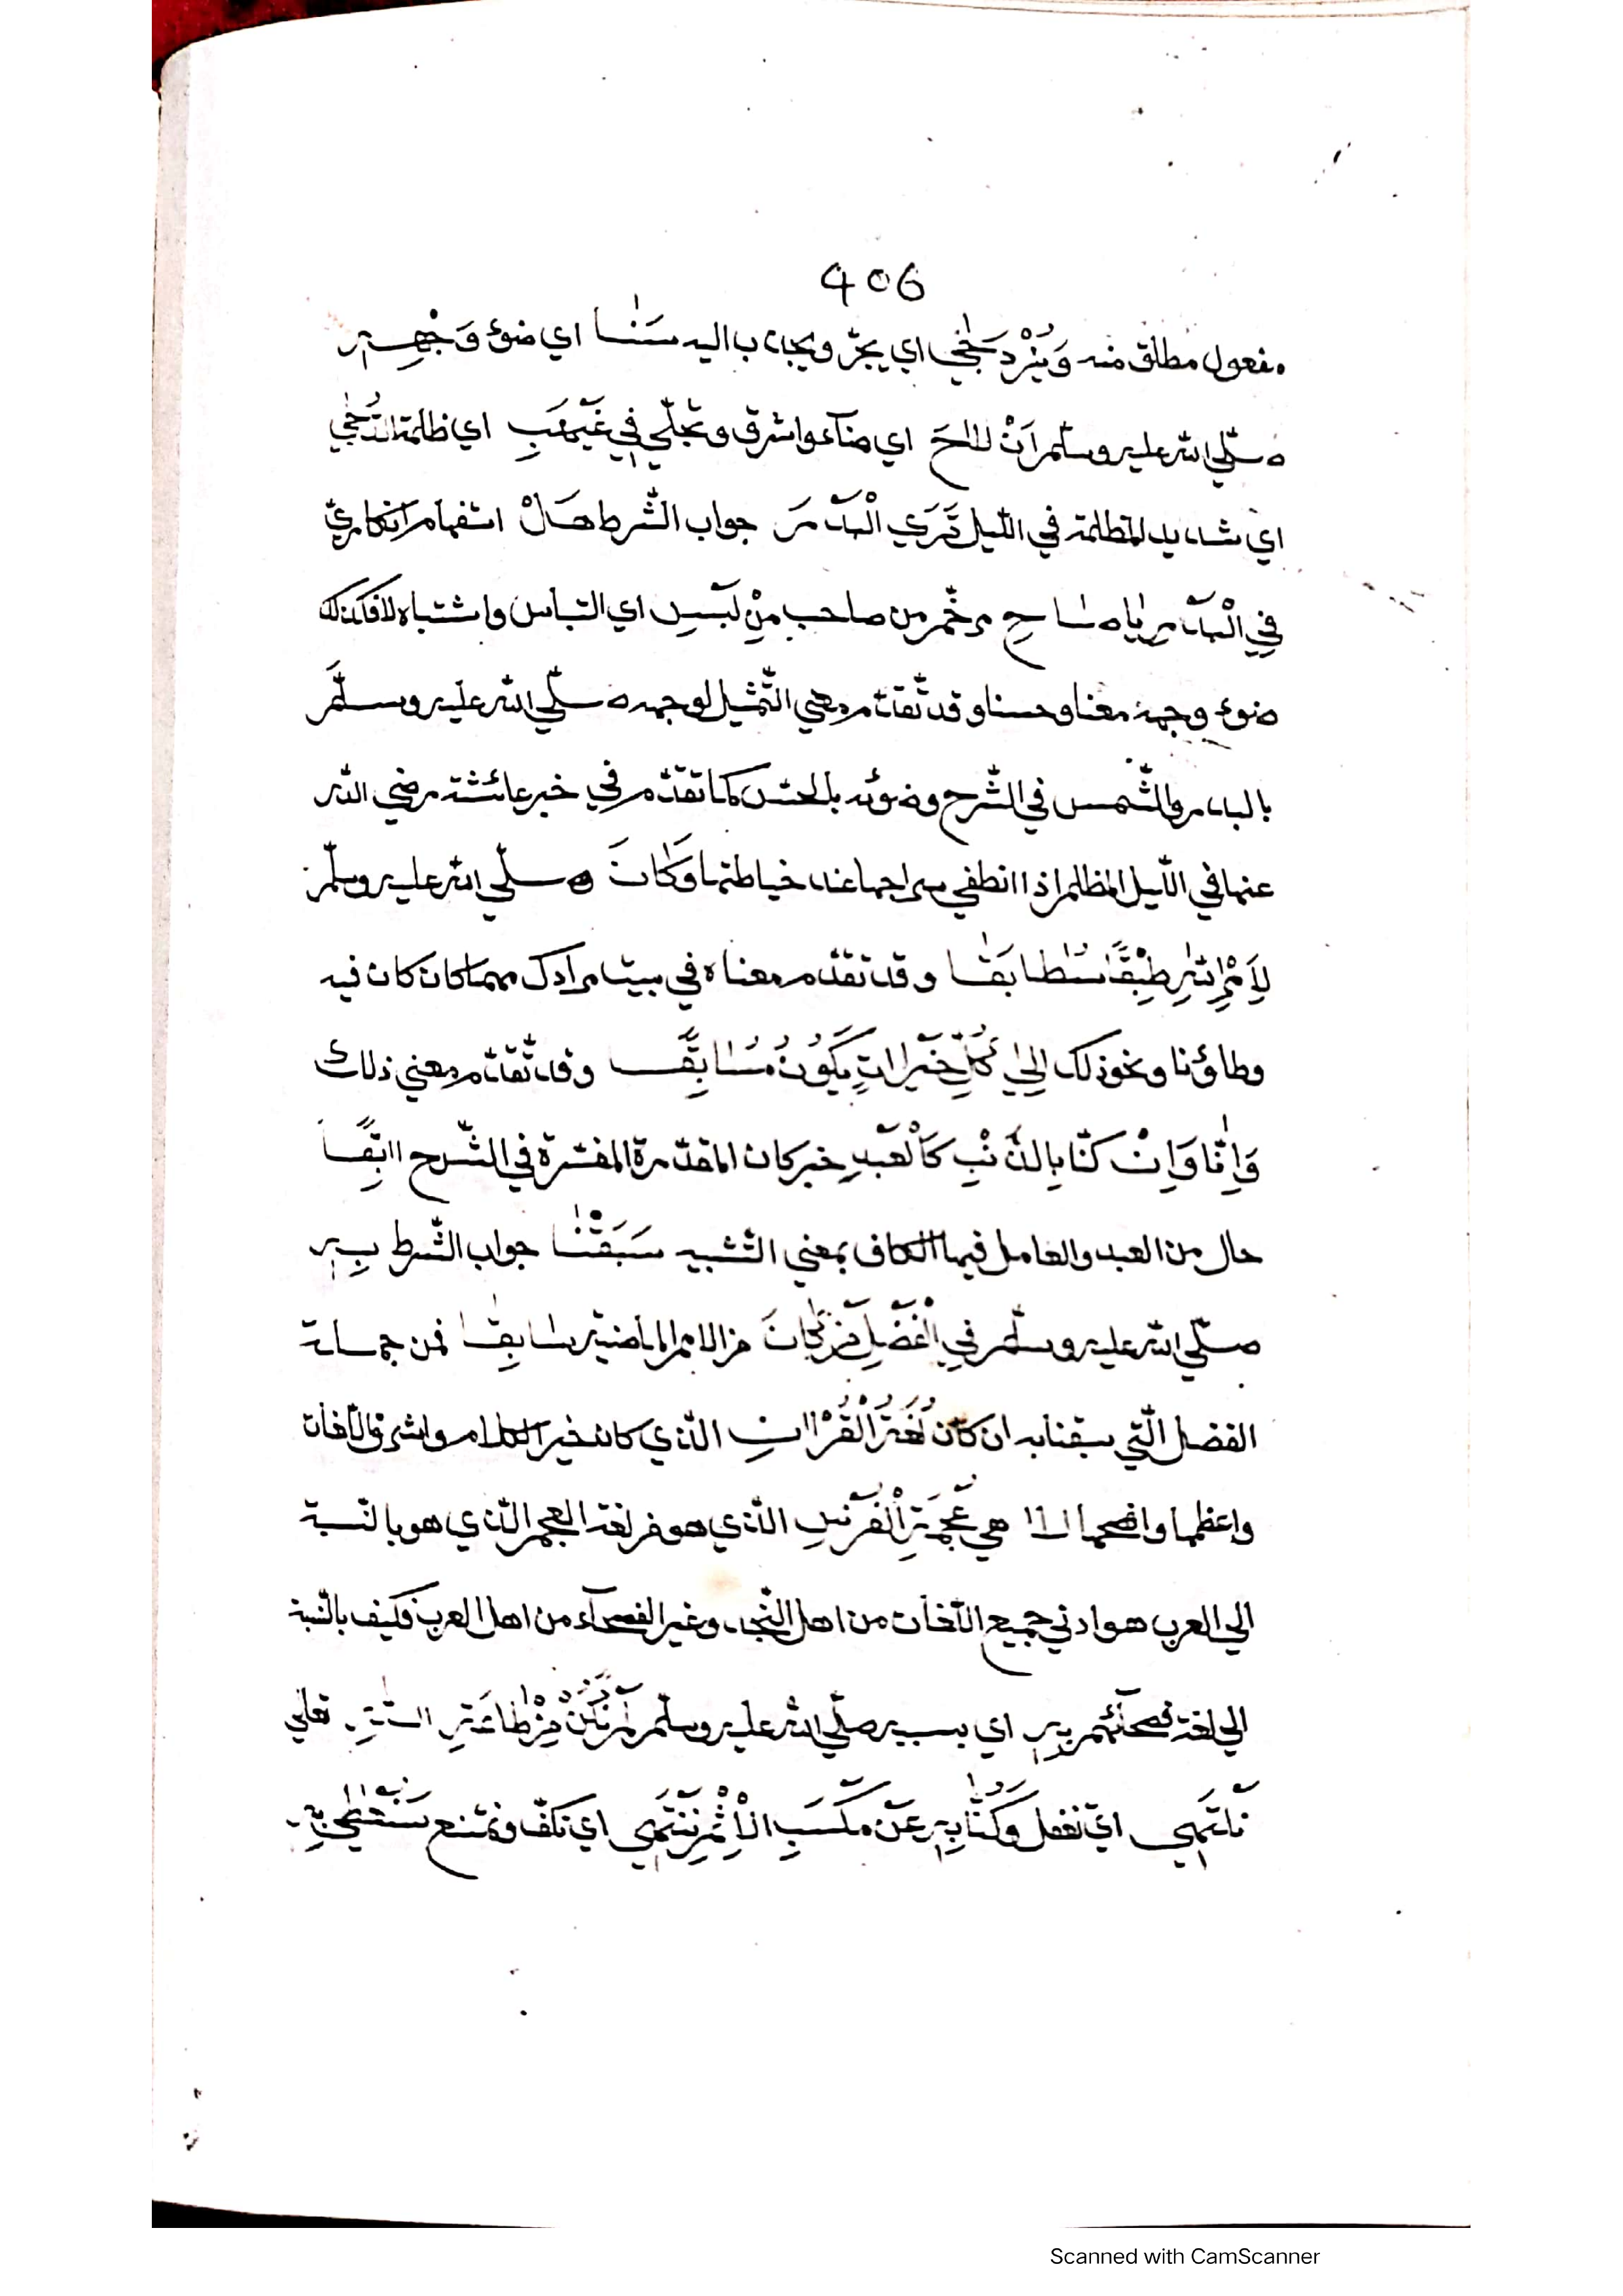 406
مفعول مطلق منه وَيُزْدَجٰي اي يجرّ ويجاء ب اليه سَنٰا اي ضوء وَجْهِهِ
صلّي الله عليه وسلّم اَنْ لاٰحَ اي ضآء واشرق وتجلّي فِي غَيْهَبِ اي ظلمة الدُّجٰي
اي شديد المظلمة في اللّيل تَرَي الْبَدْرَ جواب الشّرط هَلْ استفهام انكاريّ
فِي الْبَدْرِ يٰا صٰاحِ مرخّم من صاحب مِنْ لَبْسِ اي التباس واشتباه لا فكذلك
ضوء وجهه معنا وحسنا وقد تّقدّم معني التّمثيل لوجهه صلّي الله عليه وسلّم
بالبدر والشّمس في الشّرح وضوئه بالحسّ كما تقدّم في خبر عائشة رضي الله
عنها في اللّيل المظلم اذا انطفي سراجها عند خياطتها وَكٰانَ صلّي الله عليه وسلّم
لِاَمْرِ اللهِ طِبْقًا مُطٰابَقٰا وقد تقدّم معناه في بيت مرادك مهما كان كان فيه
وطاؤنا ونحو ذلك اِلٰي كُلِّ خَيْرٰاتٍ يَكُوْنُ مُسٰابِقًا وقد تّقدّم معني ذلك
وَاِنّٰا وَاِنْ كنّا بِالذَّنْبِ كَالْعَبْدِ خبر كان المقدّرة المفسّرة في الشّرح اٰبِقًا
حال من العبد والعامل فيها الكاف بمعني التّشبيه سَبَقْنٰا جواب الشّرط بِهِ
صلّي الله عليه وسلّم فِي الْفَضْلِ مَنْ كٰانَ من الامم الماضية سٰابِقٰا فمن جملة
الفضل الّتي سبقنا به ان كان لُغَةُ الْقُرْاٰنِ الّذي كان خير الكلام واشرف اللّغات
واعظمها وافصحها لاٰ هي عُجْمَةِ الْفُرْسِ الّذي هو من لغة العجم الّذي هو بالنّسبة
الي العرب هو ادني جميع اللّغات من اهل النّجد وغير الفصحآء من اهل العرب فكيف بالنّسبة
الي لغة فصحآئهم بِهِ اي بسببه صلّي الله عليه وسلّم لَمْ نَكُنْ مِنْ طٰاعَةِ اللهِ تعالي
نَلْتَهِي اي نغفل وَكُنّٰا بِهِ عَنْ مَكْسَبِ الْاِثْمِ نَنْتَهِي اي نكفّ ونمتنع
Scanned with CamScanner